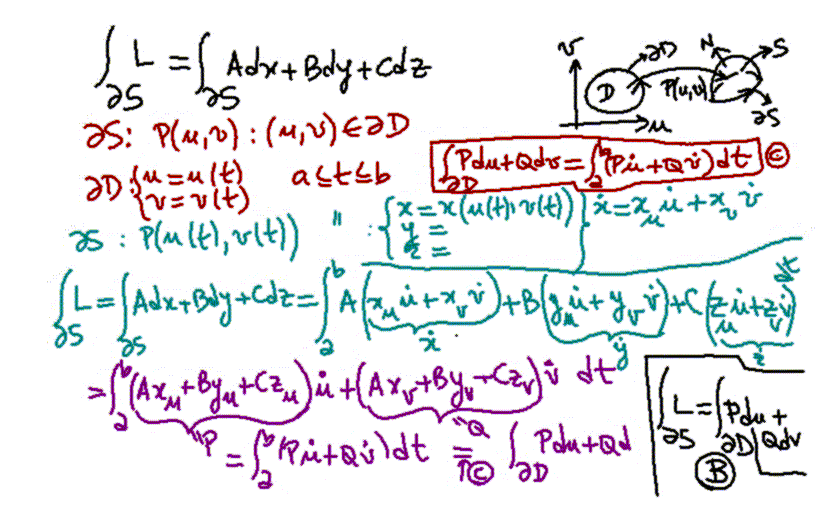 ∫_∂S L = ∫_∂S Adx + Bdy + Cdz
v ∂D N S
D P(u,v)
u ∂S
∂S: P(u,v) : (u,v) ∈ ∂D
∂D: { u = u(t) { v = v(t) a ≤ t ≤ b
∫_∂D Pdu + Qdv = ∫_a^b (Pu̇ + Qv̇) dt ©
∂S : P(u(t), v(t)) " : { x = x(u(t), v(t)) } ẋ = x_u u̇ + x_v v̇
y =
z =
∫_∂S L = ∫_∂S Adx + Bdy + Cdz = ∫_a^b A(x_u u̇ + x_v v̇) + B(y_u u̇ + y_v v̇) + C(z_u u̇ + z_v v̇) dt
ẋ ẏ ż
= ∫_a^b (Ax_u + By_u + Cz_u) u̇ + (Ax_v + By_v + Cz_v) v̇ dt
"P "Q
= ∫_a^b (Pu̇ + Qv̇) dt = ∫_∂D Pdu + Qd
↑ ©
∫_∂S L = ∫_∂D Pdu +
Qdv
B